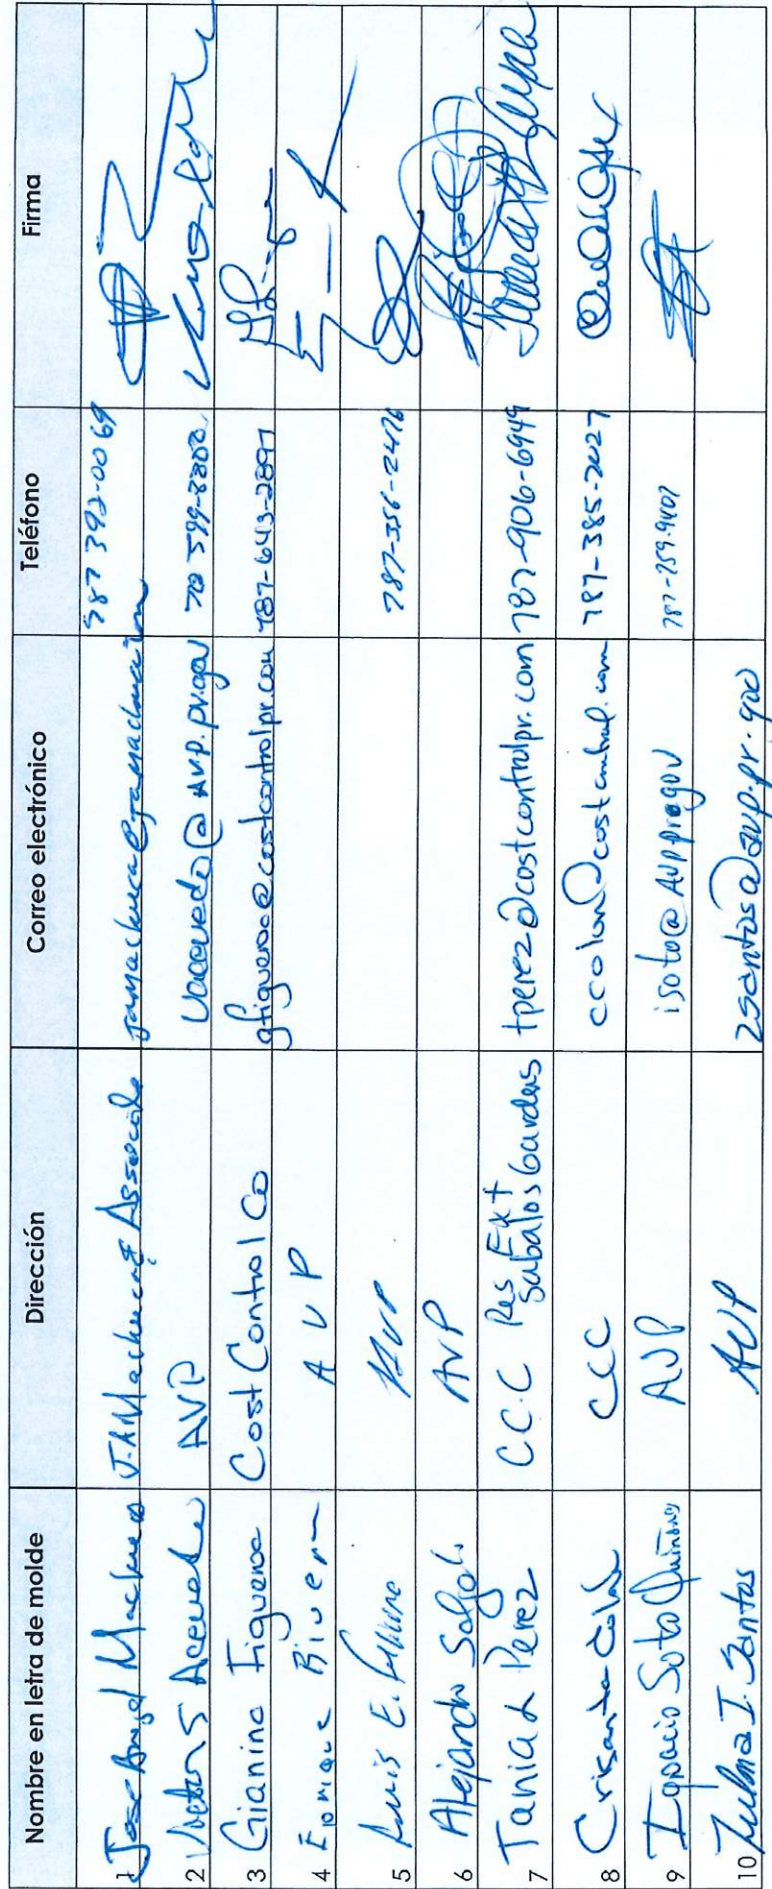 Nombre en letra de molde Dirección Correo electrónico Teléfono Firma
1 Jose Angel Machuca J.A. Machuca & Associates 787 392-0069
2 Victor S Acevedo AVP vacevedo@avp.pr.gov
3 Gianina Figueroa Cost Control Co gfigueroa@costcontrolpr.com 787-643-2897
4 Enrique Rivera AVP
5 Luis E. AVP 787-356-2476
6 Alejandro AVP
7 Tania L Perez CC.C Res Ext Sabalos Gardens tperez@costcontrolpr.com 787-906-6949
8 Crisanta Colón CCC 787-385-2027
9 Ignacio Soto Quiñones AVP 787-759-9407
10 Zulma I. Santos AVP zsantos@avp.pr.gov